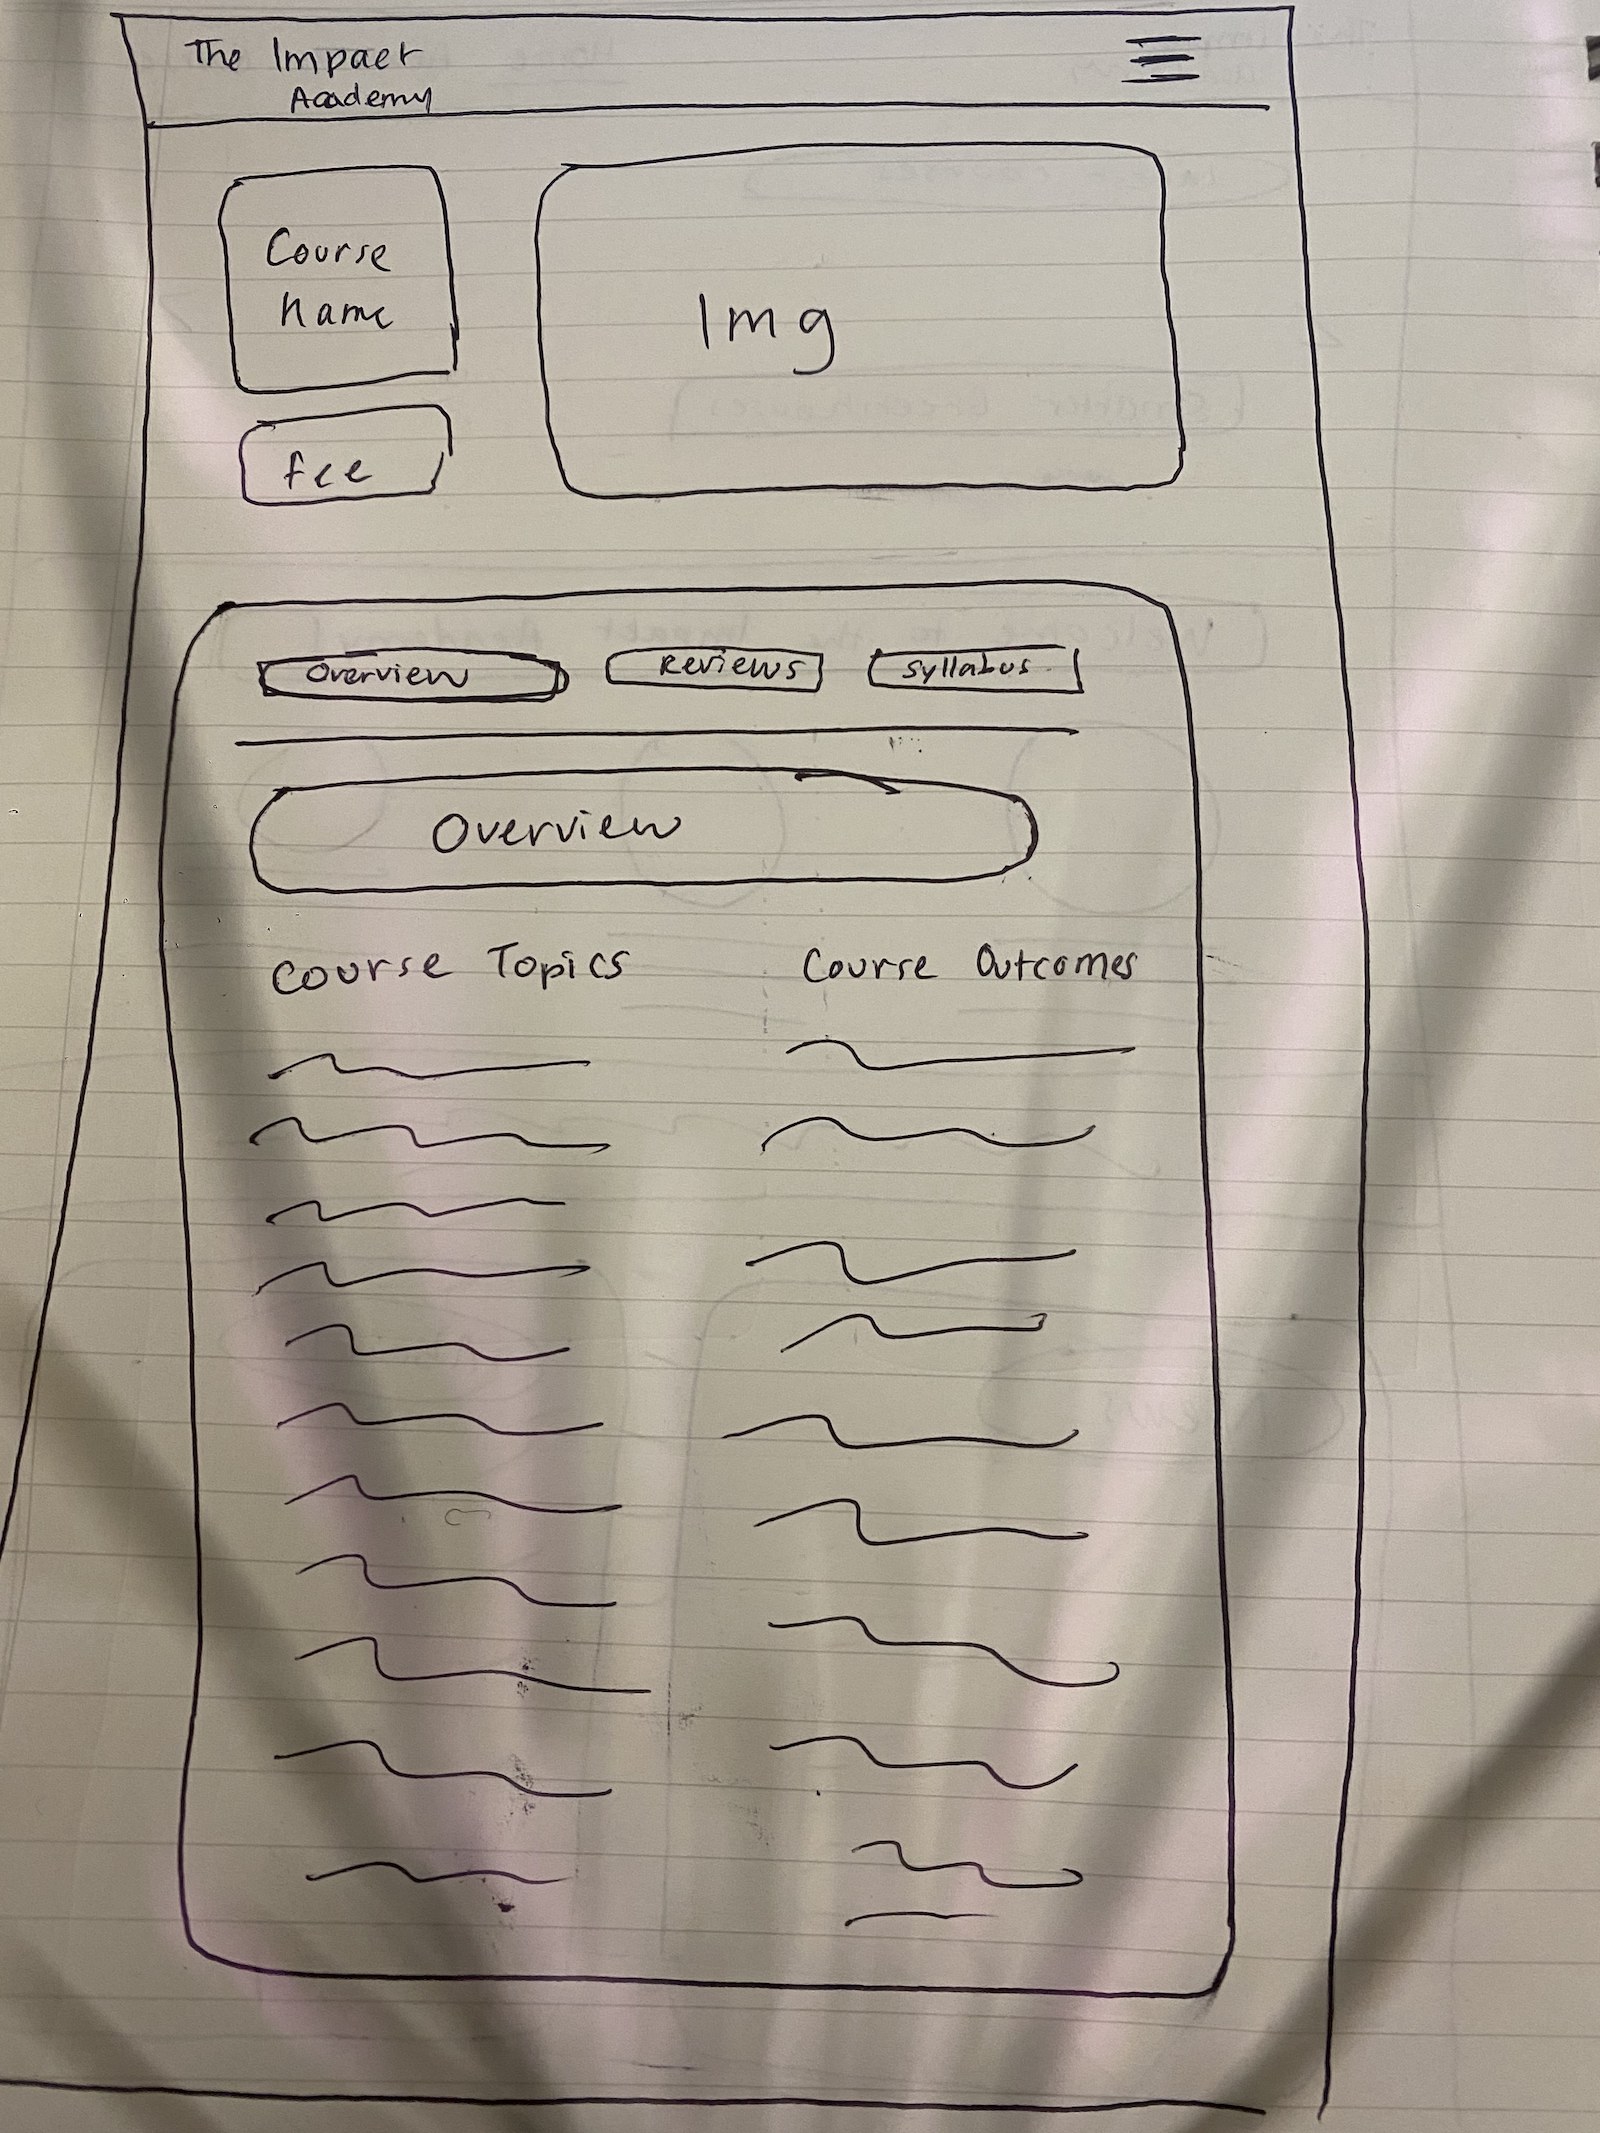 The Impact
Academy
Course
name
Img
fee
Overview Reviews Syllabus
Overview
Course Topics Course Outcomes